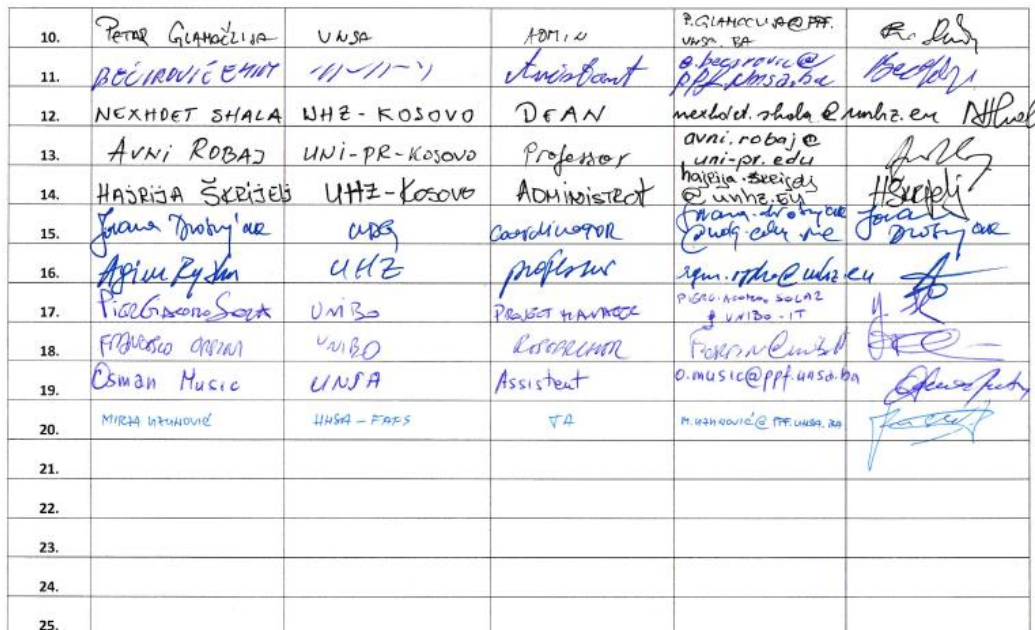 10. PETAR GLAMOČLIJA UNSA ADMIN P.GLAMOCLIJA@PPF.
UNSA.BA
11. BEĆIROVIĆ EMIN -//-//-// Assistent e.becirovic@
ppf.unsa.ba
12. NEXHDET SHALA UHZ-KOSOVO DEAN nexhdet.shala@unhz.eu
13. AVNI ROBAJ UNI-PR-KOSOVO Professor avni.robaj@
uni-pr.edu
14. HAJRIJA ŠKRIJELJ UHZ-KOSOVO ADMINISTRAT hajrija.skrijelj
@unhz.eu
15. Jovana Drobnjak UDG coordinator jovana.drobnjak
@udg.edu.me
16. Agim Rysha UHZ professor agim.rysha@unhz.eu
17. PIERGIACOMO SOLA UNIBO PROJECT MANAGER PIERGIACOMO.SOLA2
@UNIBO.IT
18. FRANCESCO ORSINI UNIBO
19. Osman Music UNSA Assistent o.music@ppf.unsa.ba
20. MIRZA UZUNOVIĆ UNSA-FAFS TA M.UZUNOVIĆ@PPF.UNSA.BA
21.
22.
23.
24.
25.